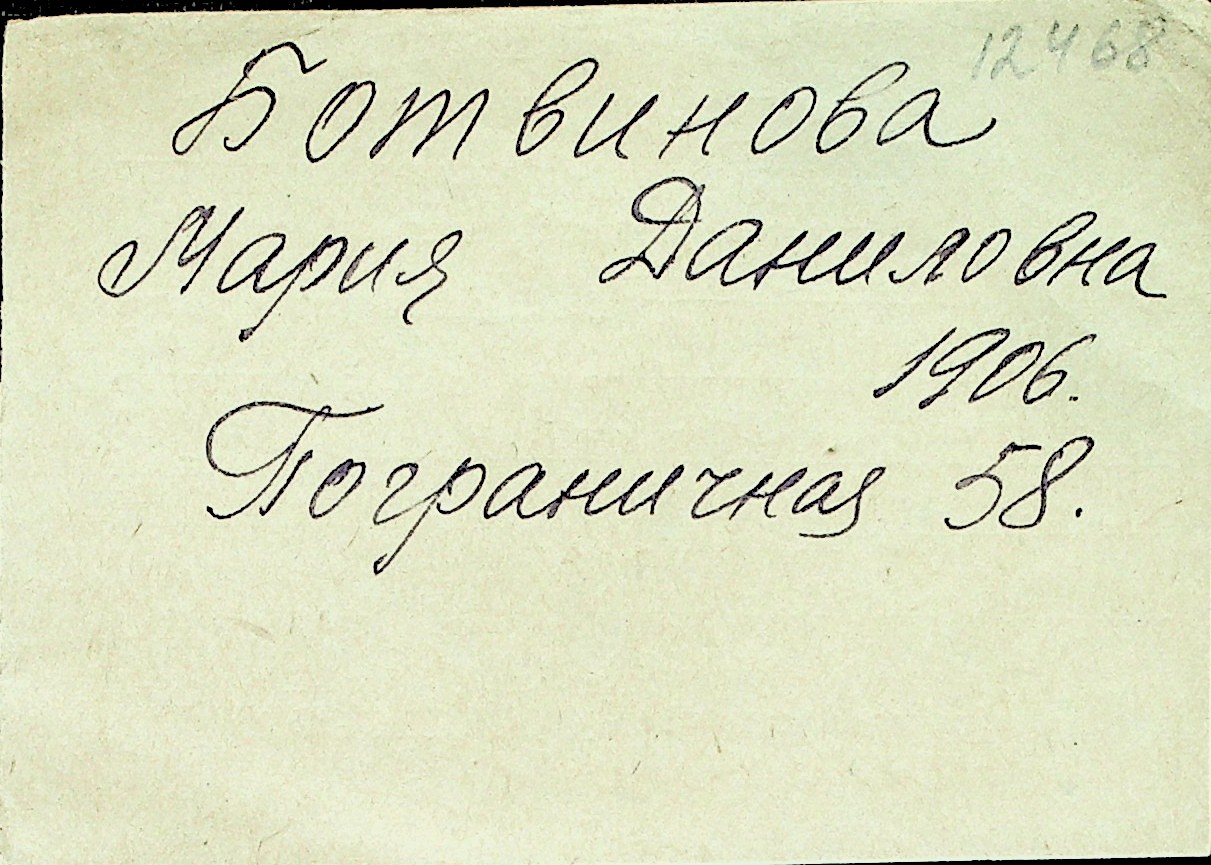 12468
Ботвинова
Мария Даниловна
1906.
Пограничная 58.